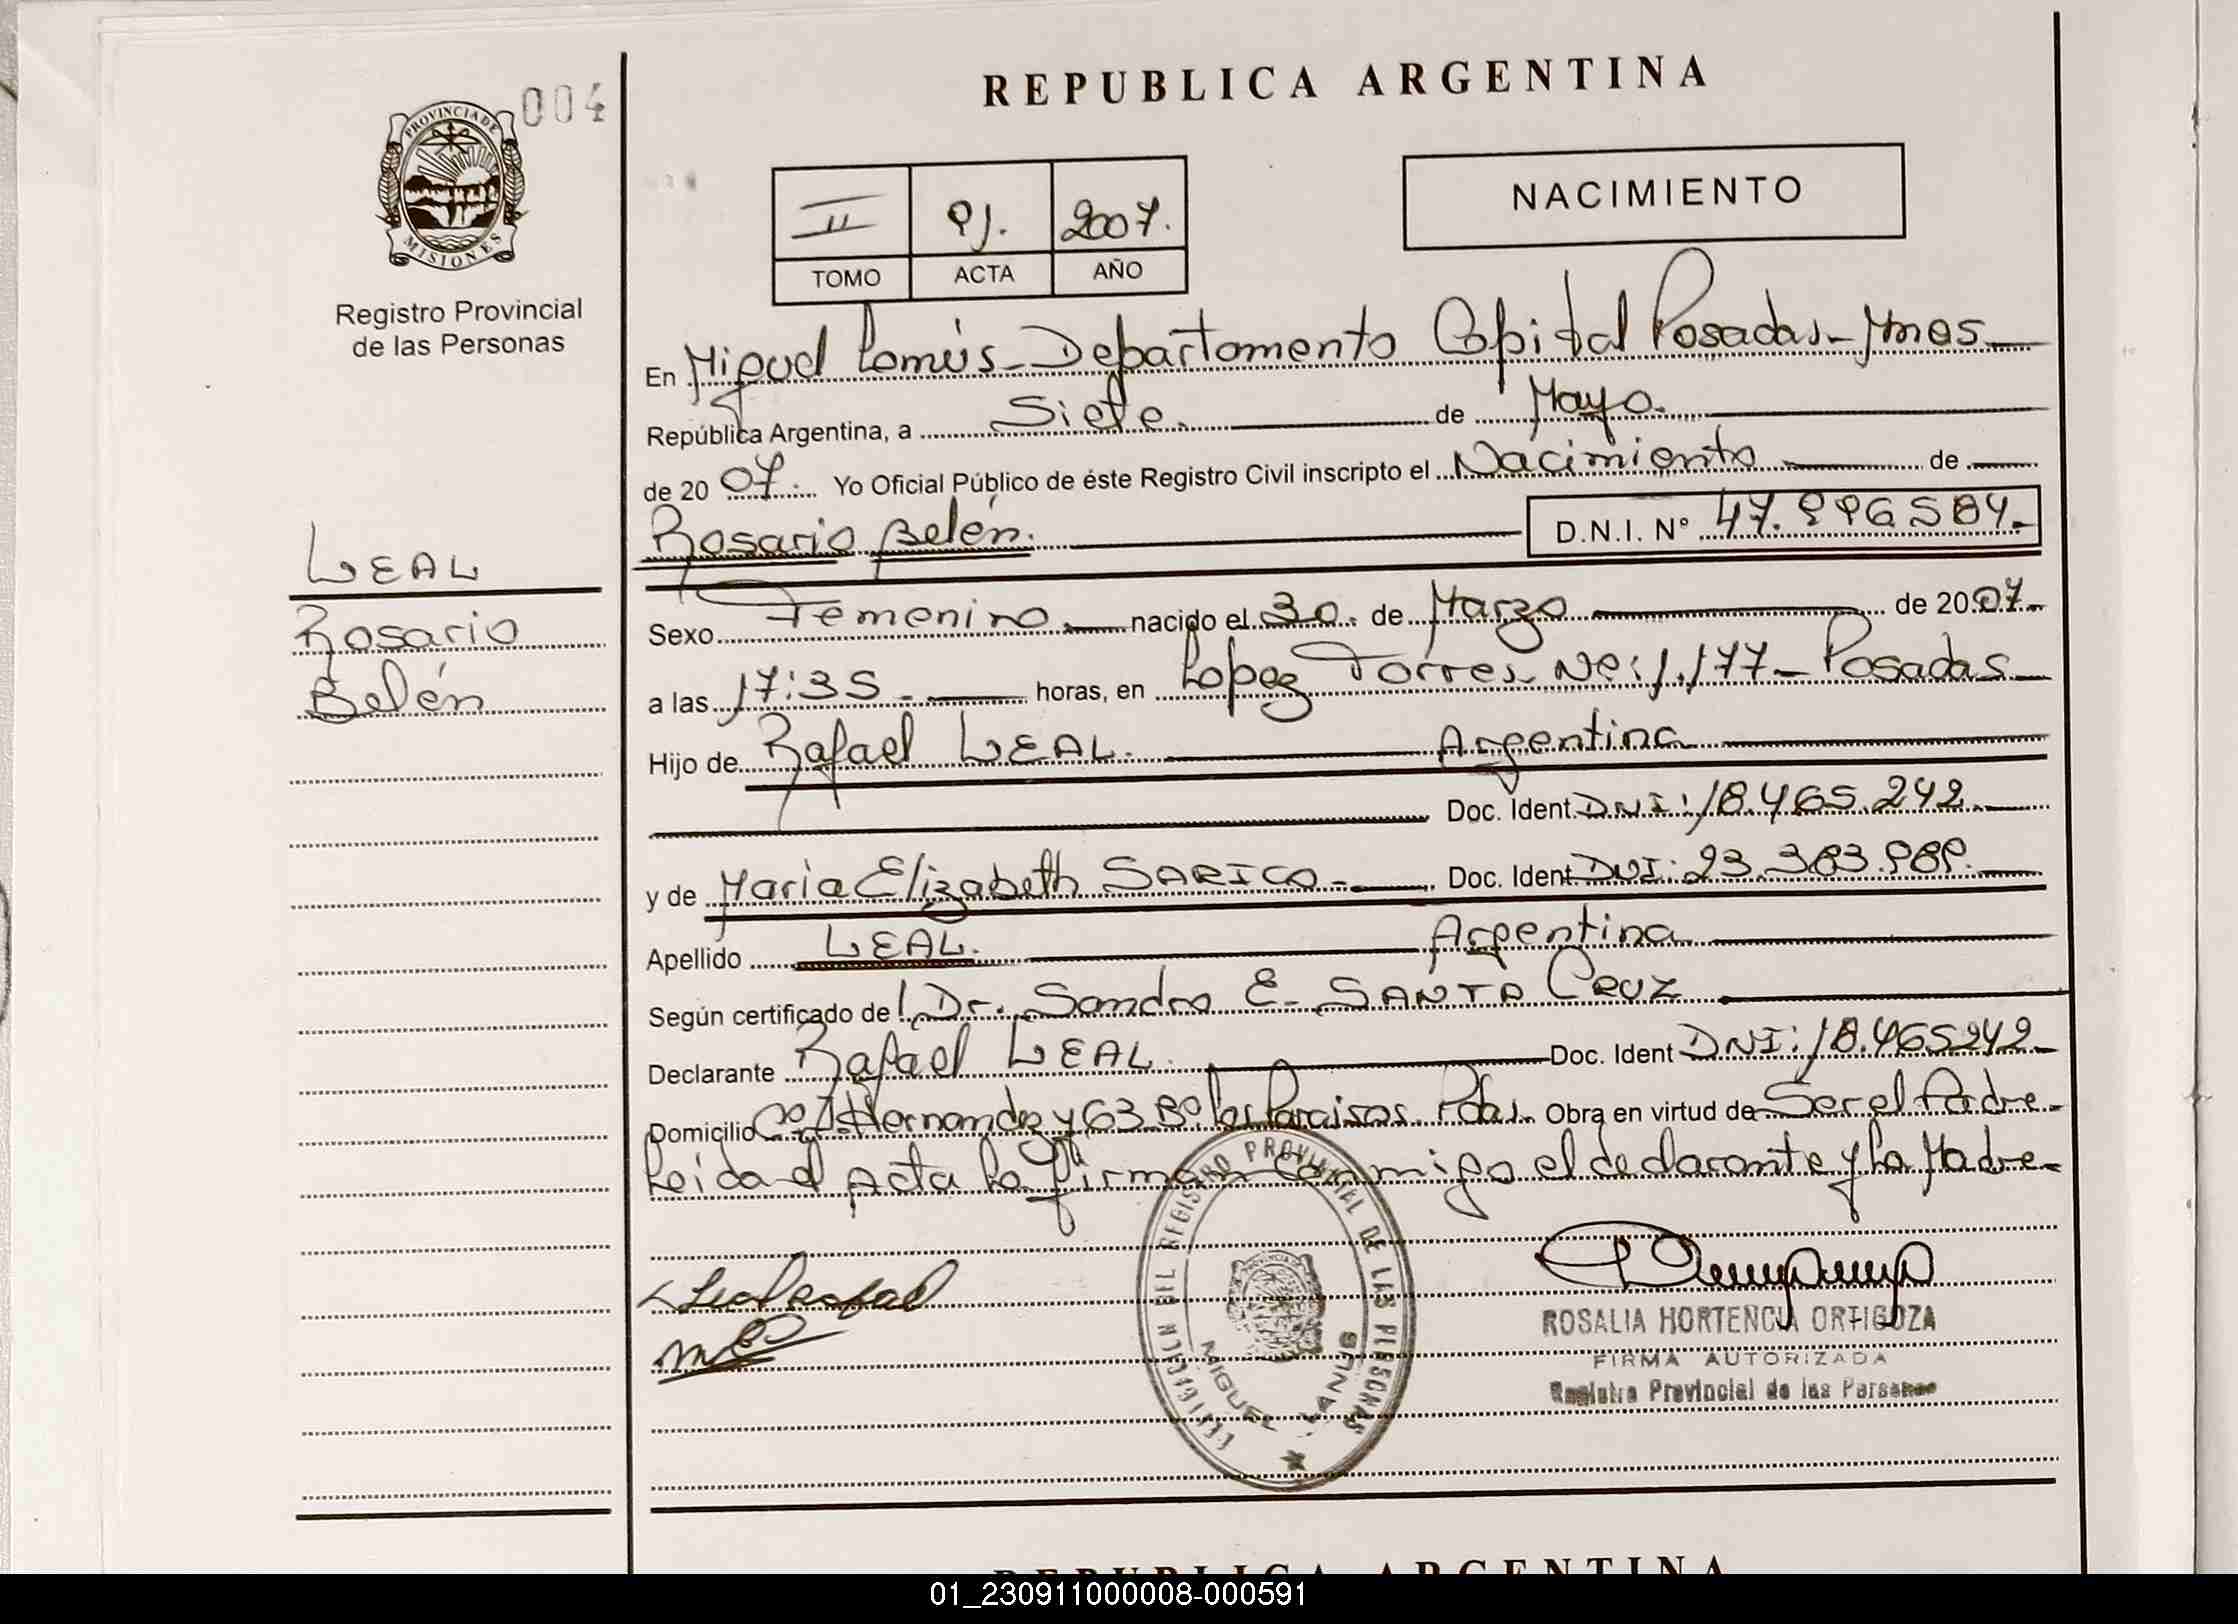 REPUBLICA ARGENTINA
004
PROVINCIA DE MISIONES
Registro Provincial
de las Personas
II 91. 2007.
TOMO ACTA AÑO
NACIMIENTO
En Miguel Lanús - Departamento Capital Posadas - Mnes
República Argentina, a Siete. de Mayo.
de 20 07. Yo Oficial Público de éste Registro Civil inscripto el Nacimiento de
Rosario Belén. D.N.I. Nº 47.996584.-
LEAL
Rosario
Belén
Sexo Femenino nacido el 30. de Marzo de 2007.-
a las 17:35 - horas, en Lopez Torres - Nº: 1.177 - Posadas
Hijo de Rafael LEAL. Argentina
Doc. Ident. DNI: 18.465.242
y de Maria Elizabeth SARICO - Doc. Ident. DNI: 23.383.989.
Apellido LEAL. Argentina
Según certificado del Dr. Sandro E. SANTA CRUZ
Declarante Rafael LEAL. Doc. Ident DNI: 18.465242 -
Domicilio Hernandez y 63 Bº Los Paraisos. Pdas. Obra en virtud de Ser el Padre -
Leida el Acta la firman conmigo el declarante y la Madre -
Leal Rafael
DEL REGISTRO PROVINCIAL DE LAS PERSONAS
MIGUEL LANUS
ROSALIA HORTENCIA ORTIGOZA
FIRMA AUTORIZADA
Registro Provincial de las Personas
REPUBLICA ARGENTINA
01_230911000008-000591